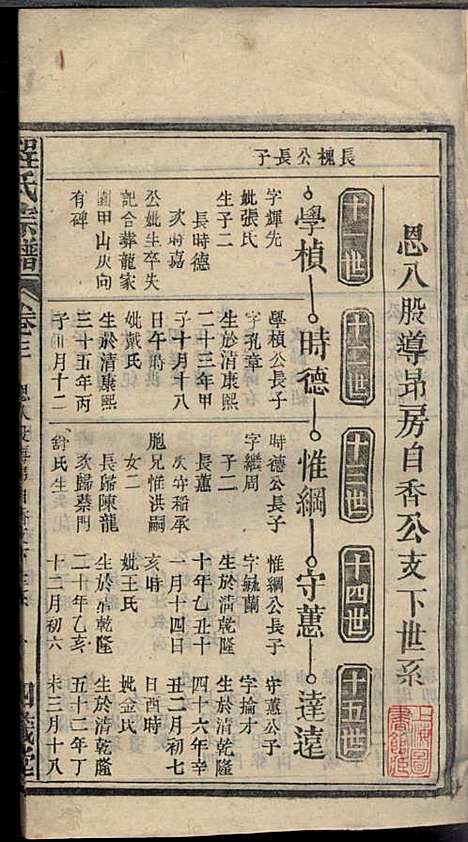 恩八股導昻房自香公支下世系
十一世
十二世
十三世
十四世
十五世
學楨
時德
惟綱
守蕙
達遠
長槐公長子
字輝先
妣張氏
生子二
長時德
次時嘉
公妣生卒失
記合葬龍家
甲山庚向
有碑
學楨公長子
字孔章
生於清康熙
二十三年甲
子十月十八
日午時
妣戴氏
生於清康熙
三十五年丙
子月十二
時德公長子
字繼周
子二
長蕙
次稻承
胞兄惟洪嗣
女二
長歸陳龍
次歸蔡門
舒氏生
惟綱公長子
字毓蘭
生於清乾隆
十年乙丑十
一月十四日
亥時
妣王氏
生於清乾隆
二十年乙亥
十二月初六
守蕙公子
字掄才
生於清乾隆
四十六年辛
丑二月初七
日酉時
妣金氏
生於清乾隆
五十二年丁
未三月十八
程氏宗譜
卷三